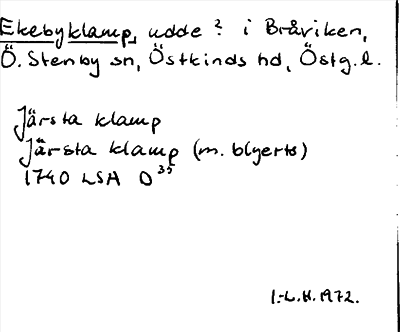 Ekebyklamp, udde? i Bråviken,
Ö. Stenby sn, Östkinds hd, Östg.l.
Järsta klamp
Järsta klamp (m. blyerts)
1740 LSA D³⁵
I.-L.H. 1972.